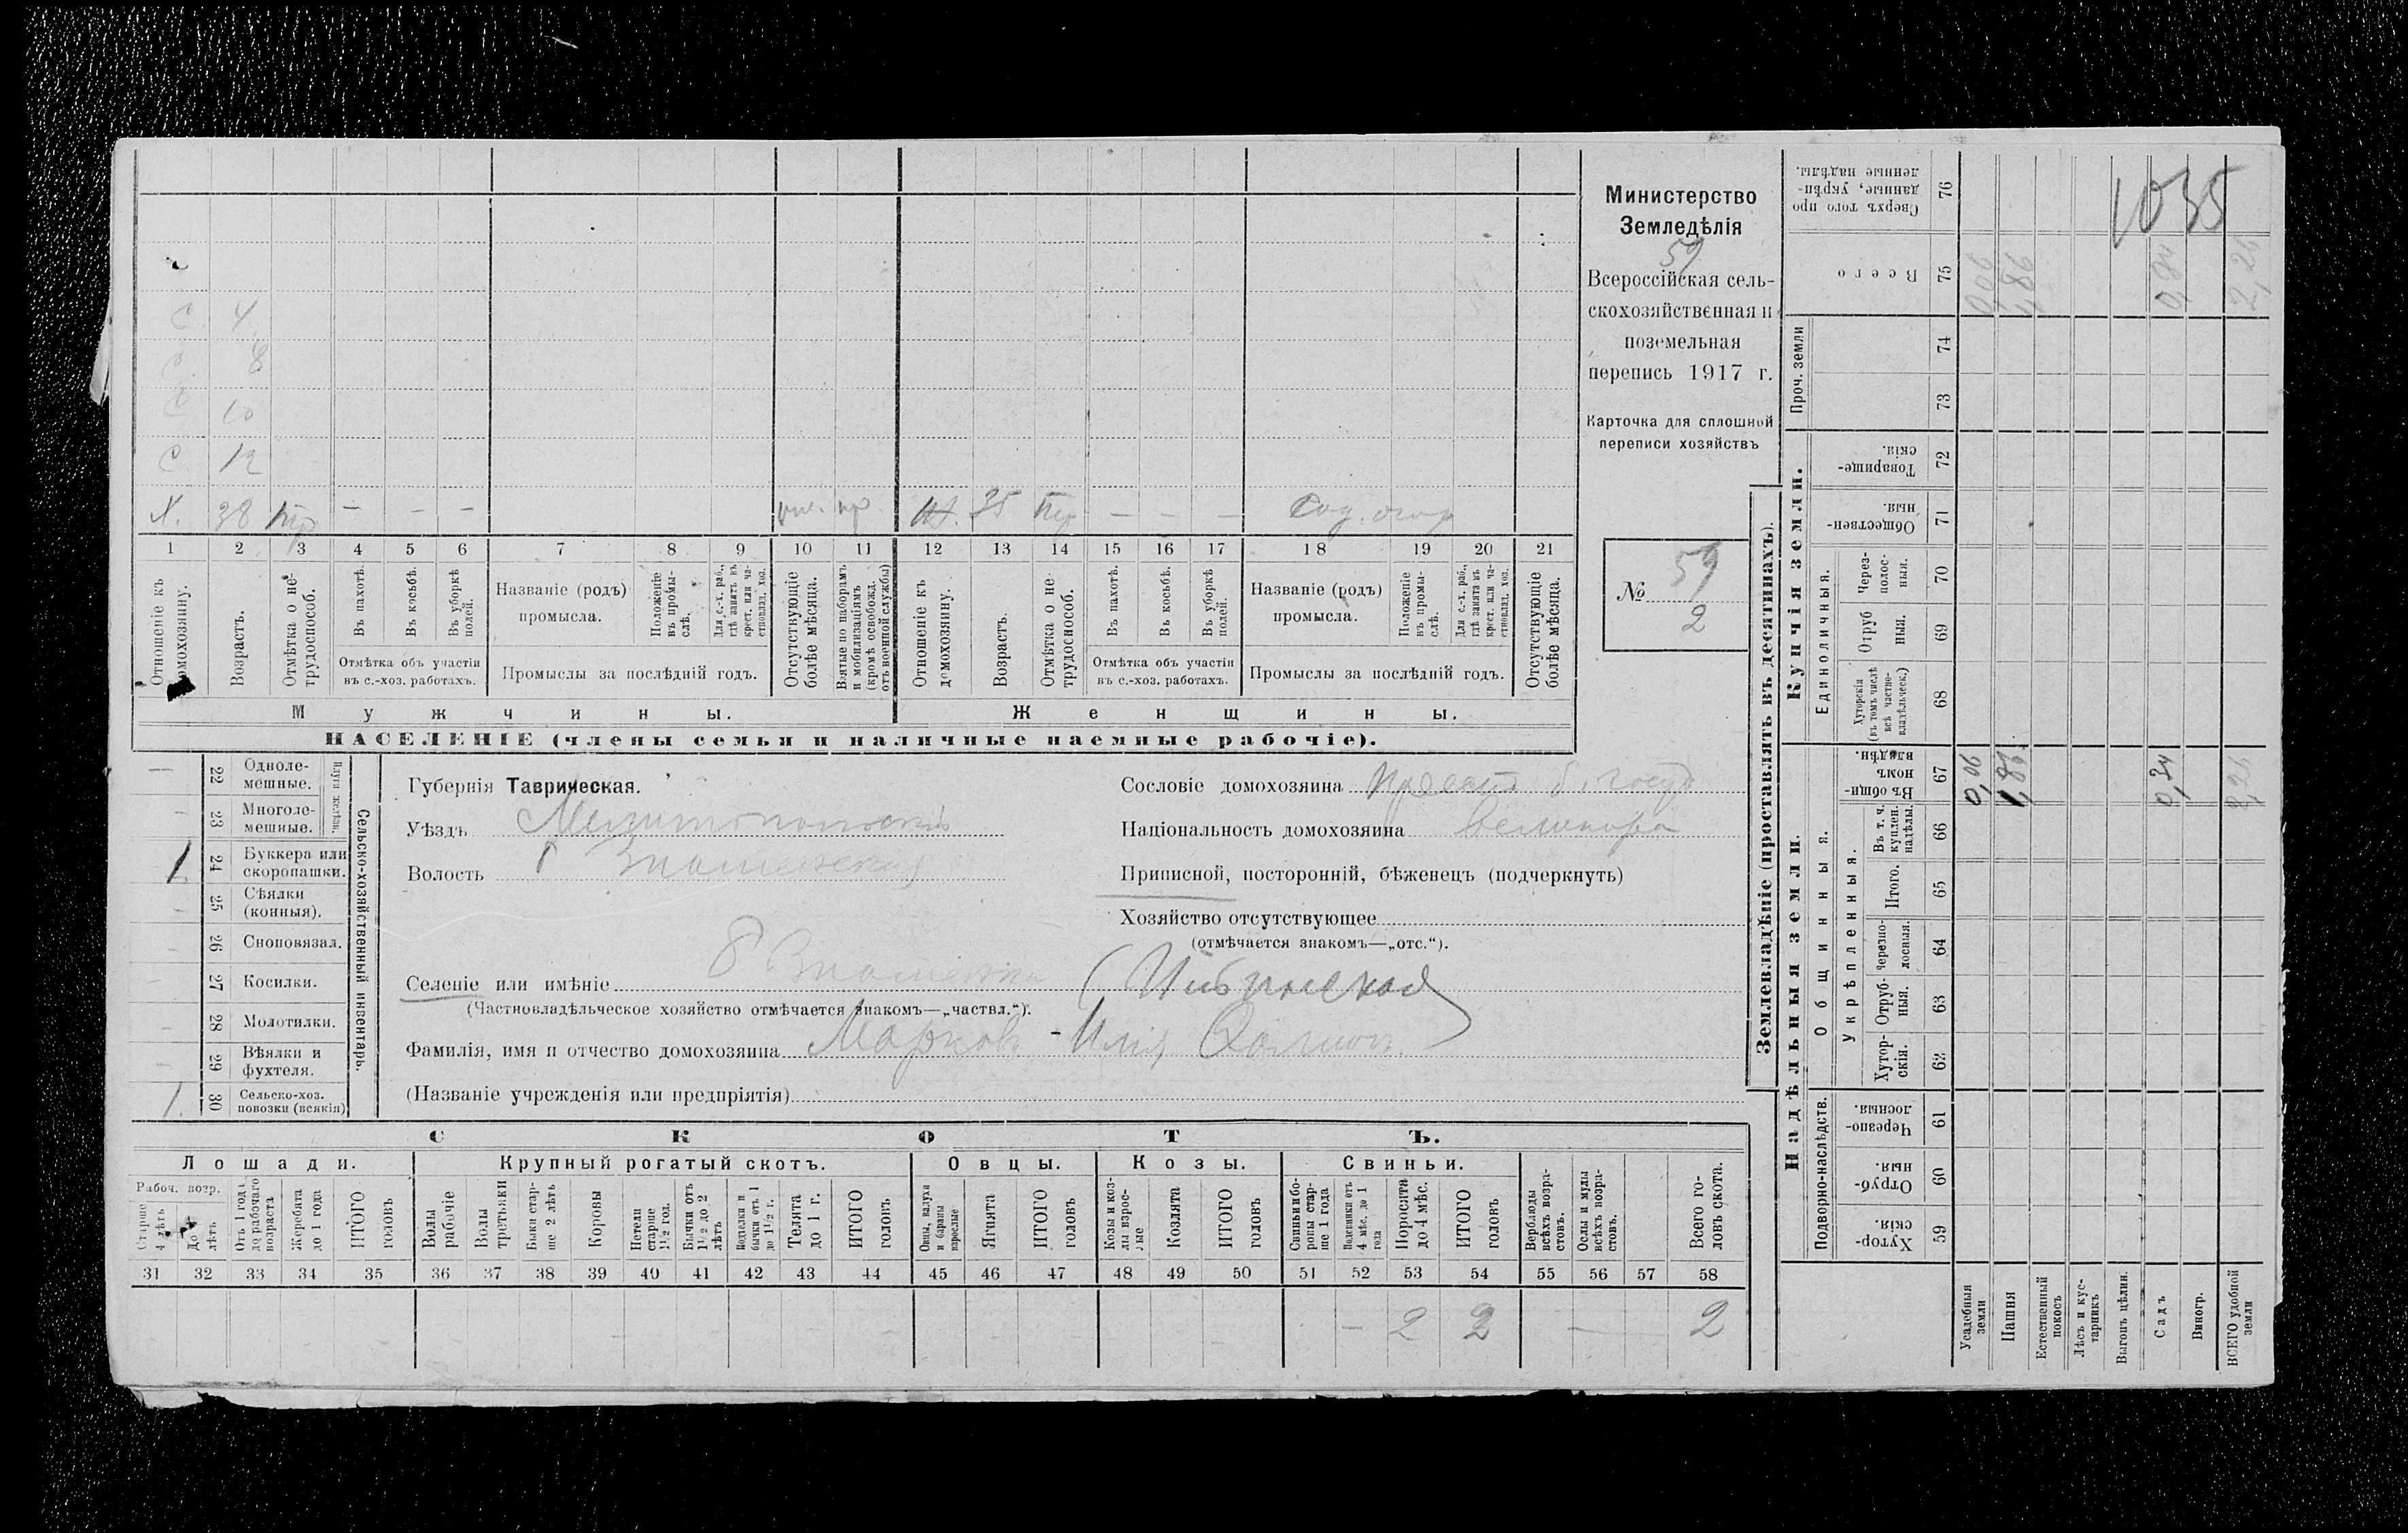 Министерство
Земледѣлія
59
Всероссійская сель-
скохозяйственная и
поземельная
перепись 1917 г.
Карточка для сплошной
переписи хозяйствъ
№ 59
2
1035
С. 4
С. 8
С. 10
С. 12
Х. 38 — — — 35 — — — Сад. огор
1 2 3 4 5 6 7 8 9 10 11 12 13 14 15 16 17 18 19 20 21
Отношеніе къ домохозяину.
Возрастъ.
Отмѣтка о не-трудоспособ.
Въ пахотѣ.
Въ косьбѣ.
Въ уборкѣ полей.
Отмѣтка объ участіи
въ с.-хоз. работахъ.
Названіе (родъ)
промысла.
Положеніе въ промы-слѣ.
Для с.-х. раб., гдѣ занятъ въ крест. или ча-стновлад. хоз.
Промыслы за послѣдній годъ.
Отсутствующіе болѣе мѣсяца.
Взятые по наборамъ и мобилизаціямъ (кромѣ освобожд. отъ военной службы)
Отношеніе къ домохозяину.
Возрастъ.
Отмѣтка о не-трудоспособ.
Въ пахотѣ.
Въ косьбѣ.
Въ уборкѣ полей.
Отмѣтка объ участіи
въ с.-хоз. работахъ.
Названіе (родъ)
промысла.
Положеніе въ промы-слѣ.
Для с.-х. раб., гдѣ занята въ крест. или ча-стновлад. хоз.
Промыслы за послѣдній годъ.
Отсутствующіе болѣе мѣсяца.
Мужчины. Женщины.
НАСЕЛЕНІЕ (члены семьи и наличные наемные рабочіе).
Сельско-хозяйственный инвентарь.
Плуги желѣзн.
— 22 Одноле-мешные.
— 23 Многоле-мешные.
1 24 Буккера или скоропашки.
— 25 Сѣялки (конныя).
— 26 Сноповязал.
— 27 Косилки.
— 28 Молотилки.
— 29 Вѣялки и фухтеля.
1 30 Сельско-хоз. повозки (всякія)
Губернія Таврическая.
Уѣздъ Мелитопольскій
Волость Знаменская
Селеніе или имѣніе Б Знаменка
(Частновладѣльческое хозяйство отмѣчается знакомъ—„частвл.“).
Фамилія, имя и отчество домохозяина Марковъ Илія
(Названіе учрежденія или предпріятія)
Сословіе домохозяина Кресть б. госуд
Національность домохозяина великоро
Приписной, посторонній, бѣженецъ (подчеркнуть)
Хозяйство отсутствующее
(отмѣчается знакомъ—„отс.“).
СКОТЪ.
Лошади. Крупный рогатый скотъ. Овцы. Козы. Свиньи.
Рабоч. возр.
Старше 4 лѣтъ
До 4 лѣтъ
Отъ 1 года до рабочаго возраста
Жеребята до 1 года
ИТОГО головъ
Волы рабочіе
Волы третьяки
Быки стар-ше 2 лѣтъ
Коровы
Нетели старше 1½ год.
Бычки отъ 1½ до 2 лѣтъ
Подтелки и бычки отъ 1 до 1½ г.
Телята до 1 г.
ИТОГО головъ
Овцы, валухи и бараны взрослые
Ягнята
ИТОГО головъ
Козы и коз-лы взрос-лые
Козлята
ИТОГО головъ
Свиньи и бо-ровы стар-ше 1 года
Подсвинки отъ 4 мѣс. до 1 года
Поросята до 4 мѣс.
ИТОГО головъ
Верблюды всѣхъ возра-стовъ.
Ослы и мулы всѣхъ возра-стовъ.
Всего го-ловъ скота.
31 32 33 34 35 36 37 38 39 40 41 42 43 44 45 46 47 48 49 50 51 52 53 54 55 56 57 58
— 2 2 — 2
Землевладѣніе (проставлять въ десятинахъ).
Надѣльныя земли. Купчія земли. Проч. земли
Подворно-наслѣдств.
Общинныя.
Укрѣпленныя.
Единоличныя.
Хутор-скія. 59
Отруб-ныя. 60
Черезпо-лосныя. 61
Хутор-скія. 62
Отруб-ныя. 63
Черезпо-лосныя. 64
Итого. 65
Въ т. ч. куплен. надѣлы. 66
Въ общин-номъ владѣн. 67
Хуторскія (въ томъ числѣ всѣ частно-владѣльческ.) 68
Отруб ныя. 69
Через-полос-ныя. 70
Обществен-ныя. 71
Товарище-скія. 72
73
74
Всего 75
Сверхъ того про данные, укрѣп-ленные надѣлы. 76
Усадебныя земли 0,06 0,06
Пашня 1,86 1,86
Естественный покосъ
Лѣсъ и кус-тарникъ
Выгонъ цѣлин.
Садъ 0,24
Виногр.
ВСЕГО удобной земли 2,26